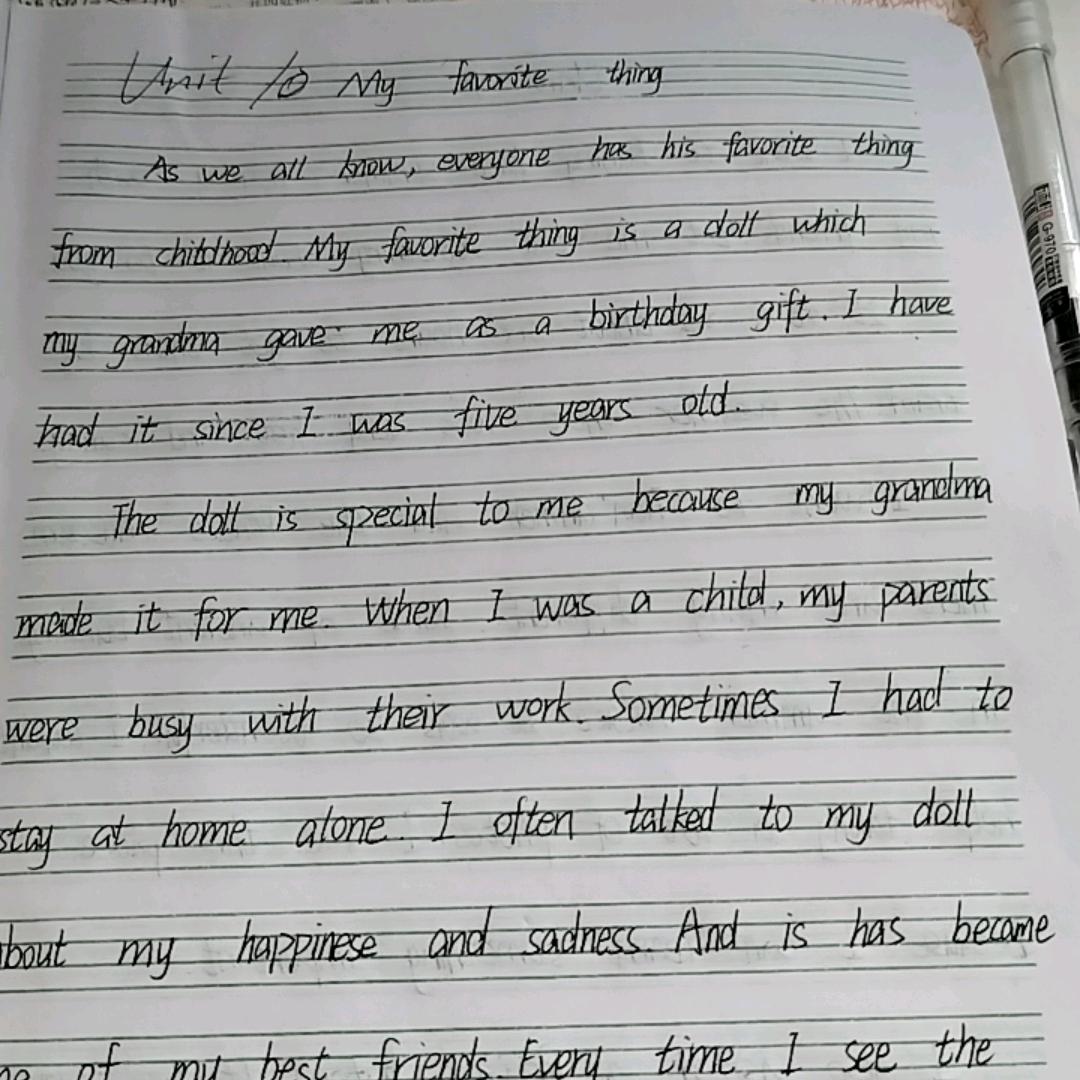 Unit 10 My favorite thing
As we all know, everyone has his favorite thing
from childhood. My favorite thing is a doll which
my grandma gave me as a birthday gift. I have
had it since I was five years old.
The doll is special to me because my grandma
made it for me. When I was a child, my parents
were busy with their work. Sometimes I had to
stay at home alone. I often talked to my doll
bout my happinese and sadness. And is has became
of my best friends. Every time I see the
G-970